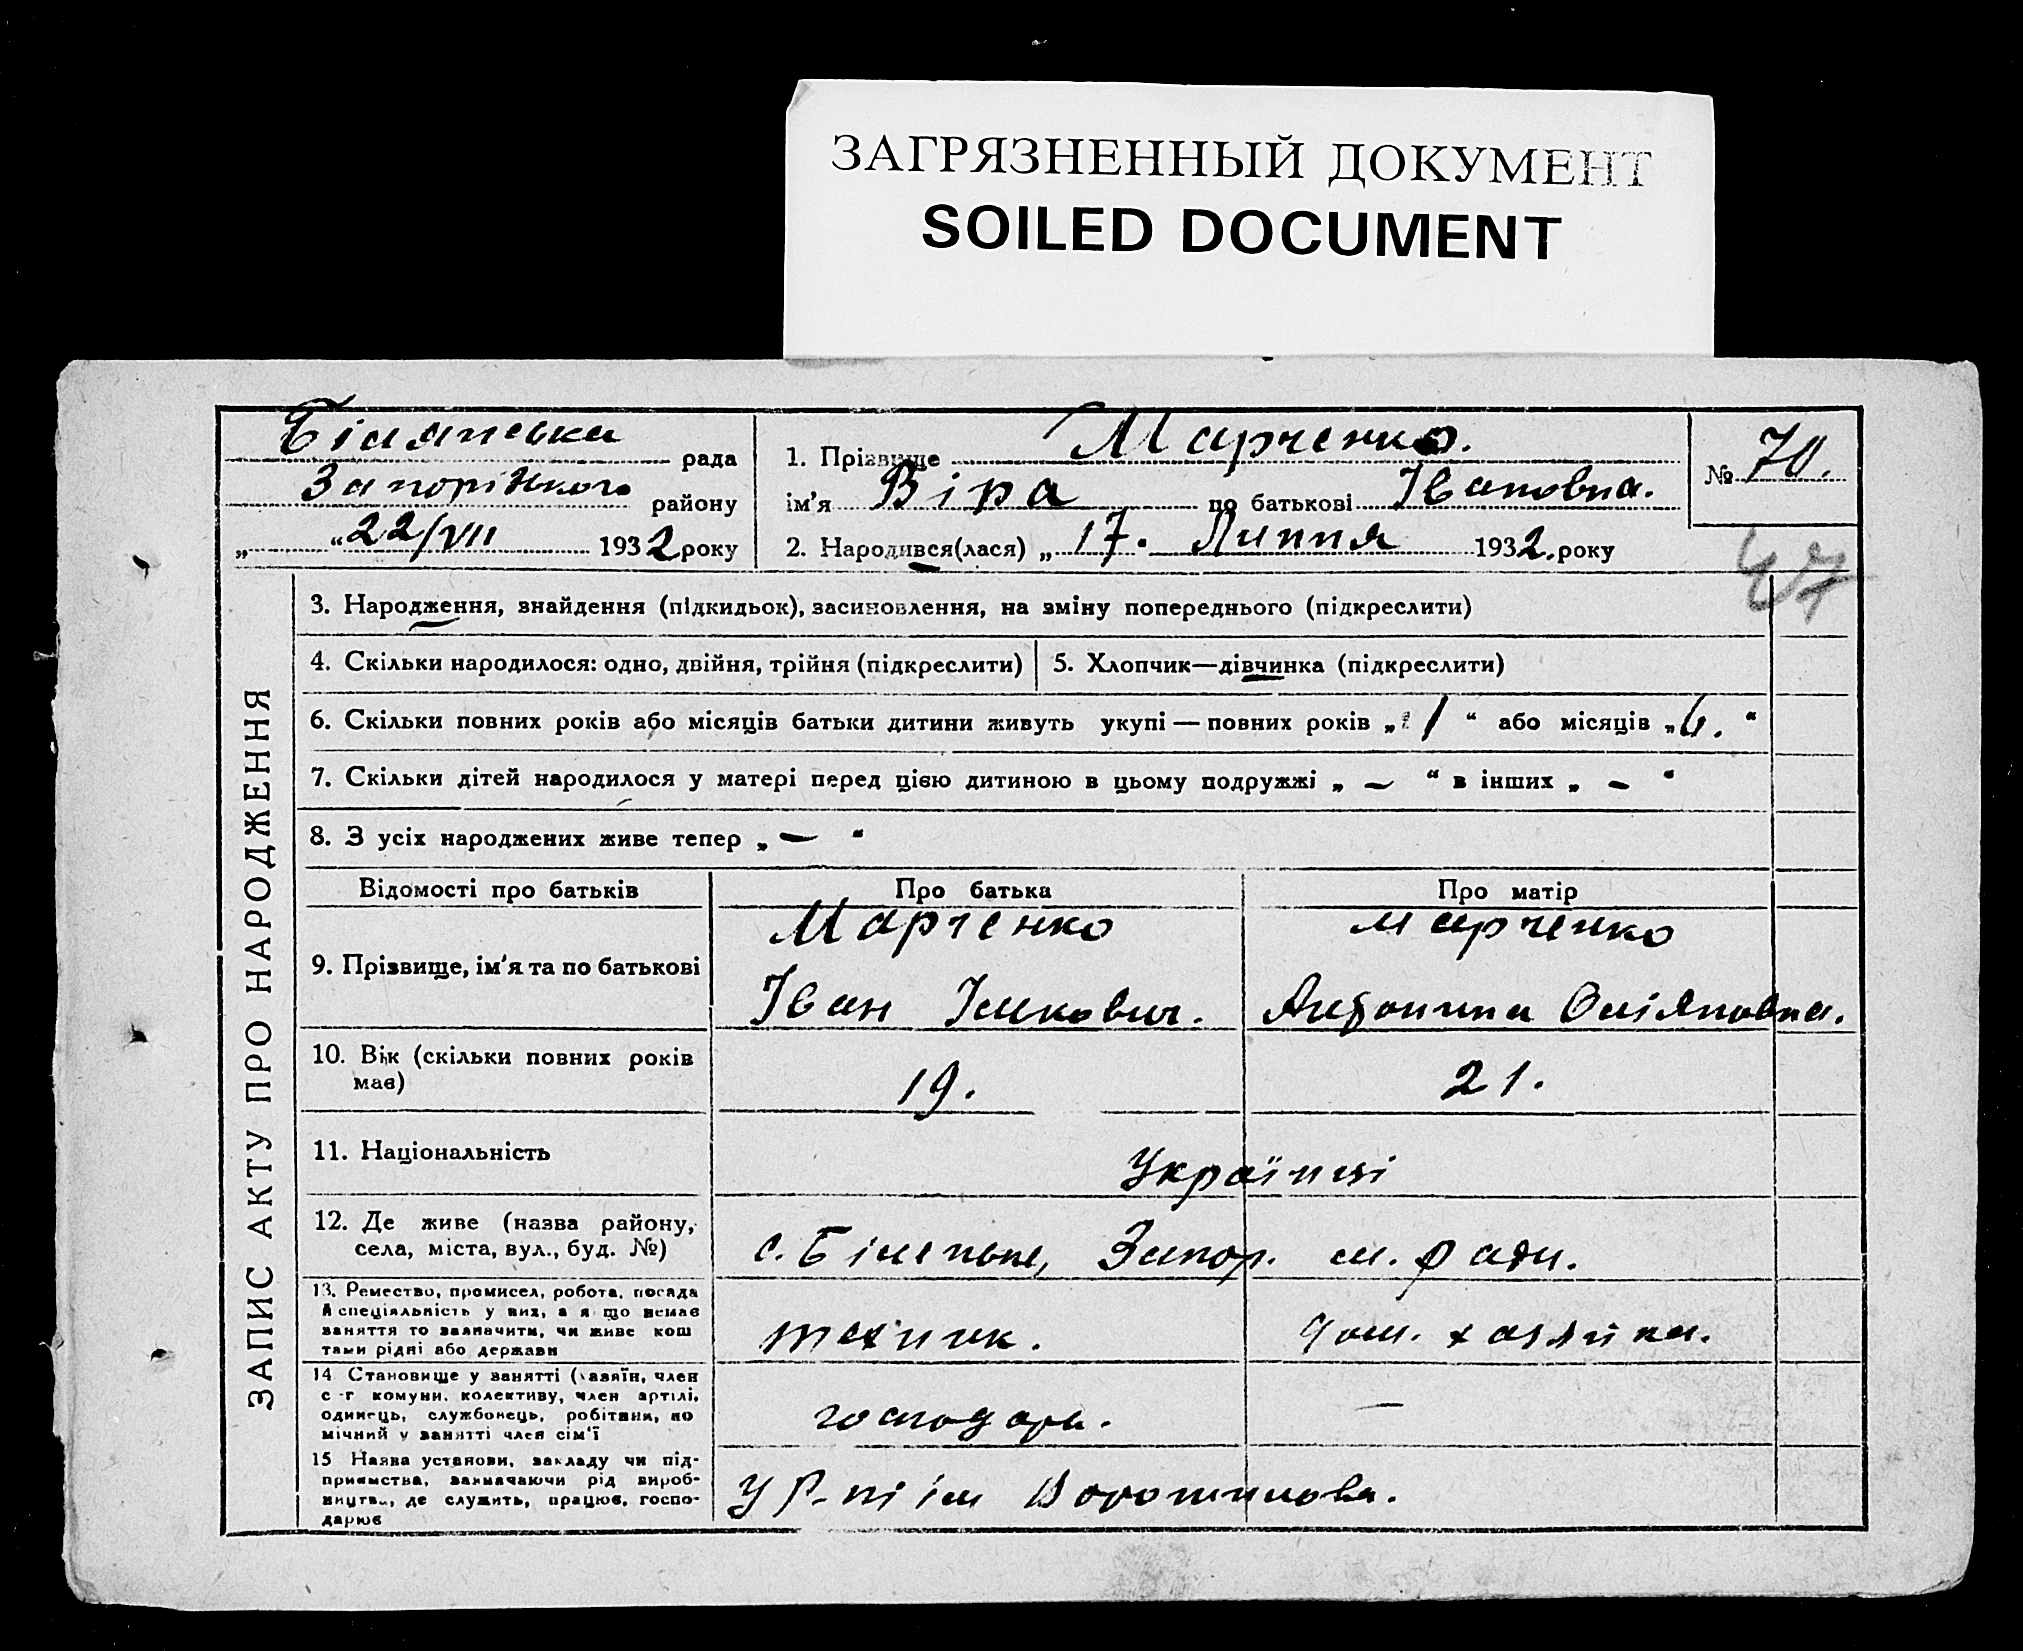 ЗАГРЯЗНЕННЫЙ ДОКУМЕНТ
SOILED DOCUMENT
рада
Запоріжкого району
„ “ 22/VII 1932 року
1. Прізвище Марченко.
ім'я Віра по батькові Івановна.
2. Народився(лася) „ 17. Липня 1932. року
№ 70.
47
ЗАПИС АКТУ ПРО НАРОДЖЕННЯ
3. Народження, знайдення (підкидьок), засиновлення, на зміну попереднього (підкреслити)
4. Скільки народилося: одно, двійня, трійня (підкреслити)
5. Хлопчик—дівчинка (підкреслити)
6. Скільки повних років або місяців батьки дитини живуть укупі — повних років „ 1 “ або місяців „ 6. “
7. Скільки дітей народилося у матері перед цією дитиною в цьому подружжі „ — “ в інших „ — “
8. З усіх народжених живе тепер „ — “
Відомості про батьків
Про батька
Про матір
9. Прізвище, ім'я та по батькові
Марченко
Іван
Марченко
10. Вік (скільки повних років
має)
19.
21.
11. Національність
Українці
12. Де живе (назва району,
села, міста, вул., буд. №)
с. Запор. м. ради.
13. Ремество, промисел, робота, посада
й спеціяльність у них, а якщо немає
заняття то зазначити, чи живе кош
тами рідні або держави
технік.
дом. хазяйка.
14 Становище у занятті (хазяїн, член
с-г комуни, колективу, член артілі,
одинець, службовець, робітник, по
мічний у занятті член сім'ї
господарь.
—
15 Назва установи, закладу чи під-
приємства, зазначаючи рід вироб-
ництва, де служить, працює, госпо-
дарює
ім Ворошилова.